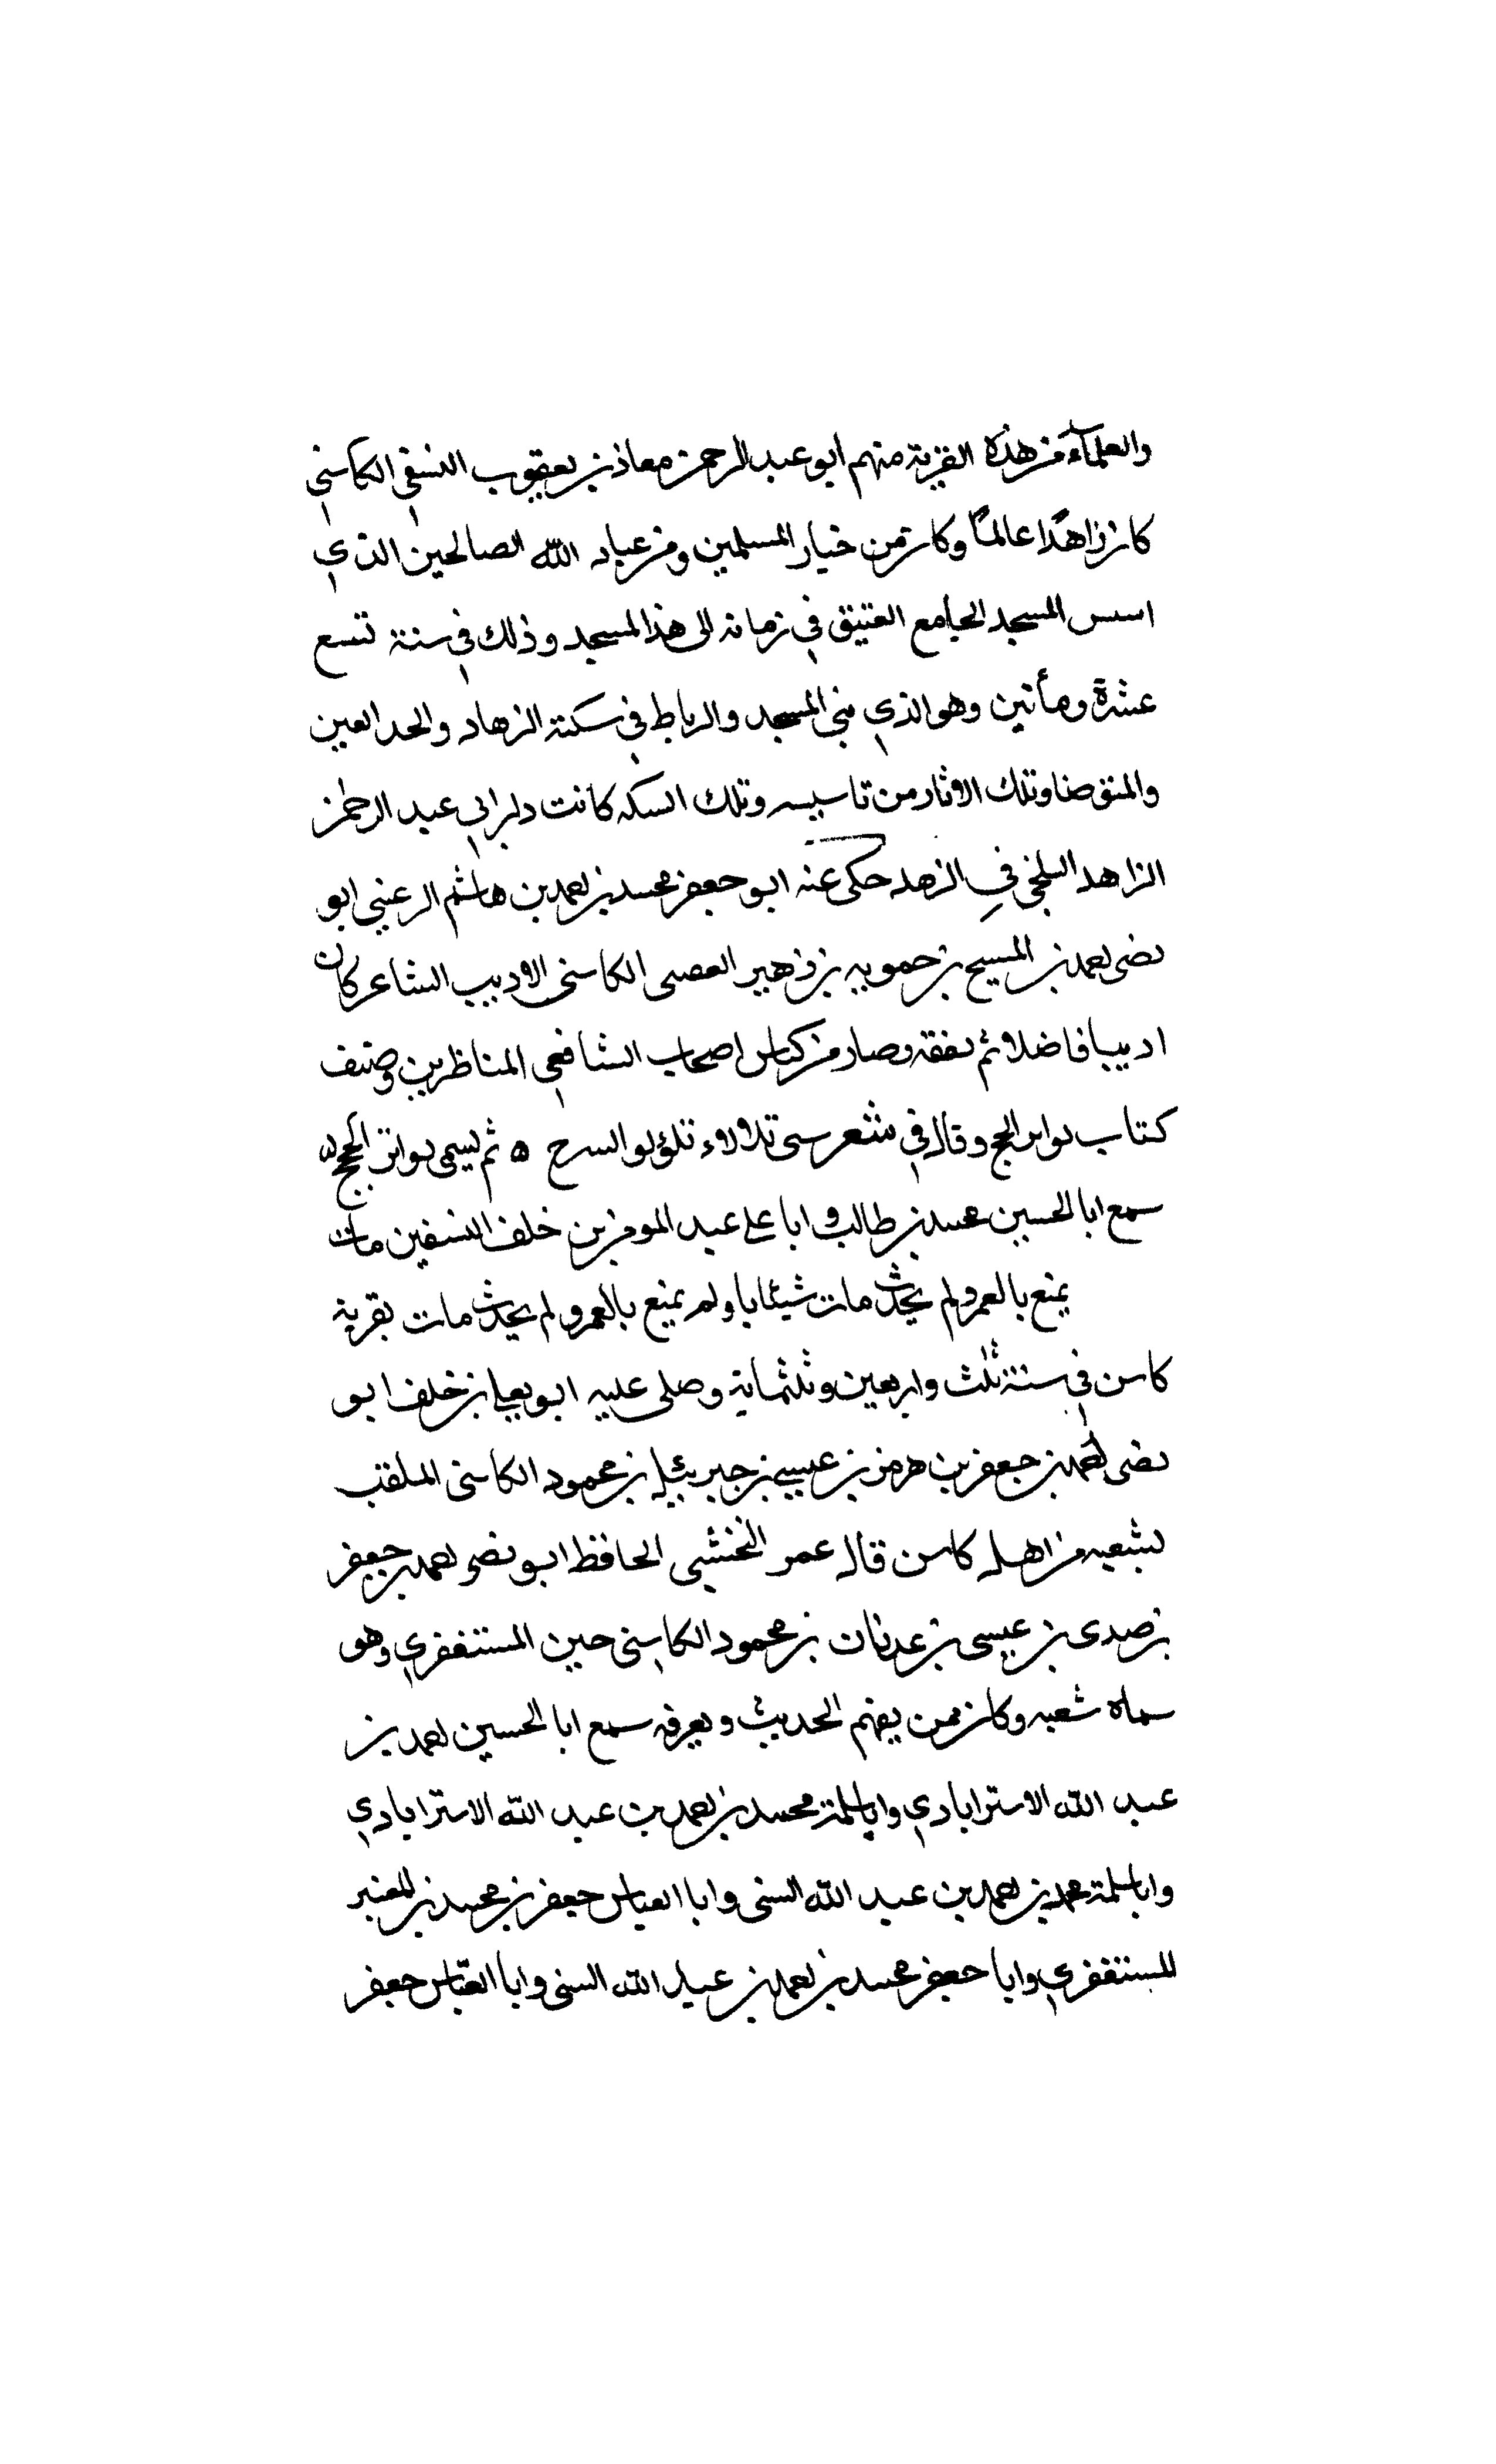 والعلمآء من هذه القرية منهم ابو عبد الرحمن معاذ بن يعقوب النسفي الكاسني
كان زاهدًا عالمًا وكان من خيار المسلمين ومن عباد الله الصالحين الذي
اسس المسجد الجامع العتيق في زمانه الى هذا المسجد وذلك في سنة تسع
عشرة ومأتين وهو الذي بنى المسجد والرباط في سكة الزهاد والحد العين
وتلك الاثار من تاسيسه وتلك السكه كانت دار ابي عبد الرحمن
الزاهد البلخي في الزهد حكى عنه ابو جعفر محمد بن احمد بن هاشم ابو
نصر احمد بن المسيح بن حمويه بن زهير الكاسنى الاديب الشاعر كان
اديبا فاضلا ثم تفقه وصار من كبار اصحاب الشافعي المناظرين وصنف
كتاب بواتر الحج وقال في شعر سى تلالاء تلؤلو السرح ه ثم يسمى بواتر الحجج
سمع ابا الحسين محمد بن طالب وابا على عبد المومن بن خلف النسفيين مات
يمتع بالعمر ولم يحدث مات شيئا باو لم يمتع بالعمر ولم يحدث مات بقرية
كاسن في سنة ثلث واربعين وثلثماية وصلى عليه ابو يعلى بن خلف ابو
نصر احمد بن جعفر بن هرمز بن عيسى بن جبرئيل بن محمود الكاسنى الملقب
بشعبه من اهل كاسن قال عمر النخشبى الحافظ ابو نصر احمد بن جعفر
بن صدى بن عيسى بن عدنان بن محمود الكاسنى حين المستغفري وهو
سماه شعبه وكان ممن يفهم الحديث ويعرفه سمع ابا الحسين احمد بن
عبد الله الاسترابادي وابا سلمة محمد بن احمد بن عبد الله الاسترابادي
وابا سلمة محمد بن احمد بن عبد الله السنى وابا العباس جعفر بن محمد بن المعتبر
المستغفري وابا جعفر محمد بن احمد بن عبد الله السنى وابا العبّاس جعفر